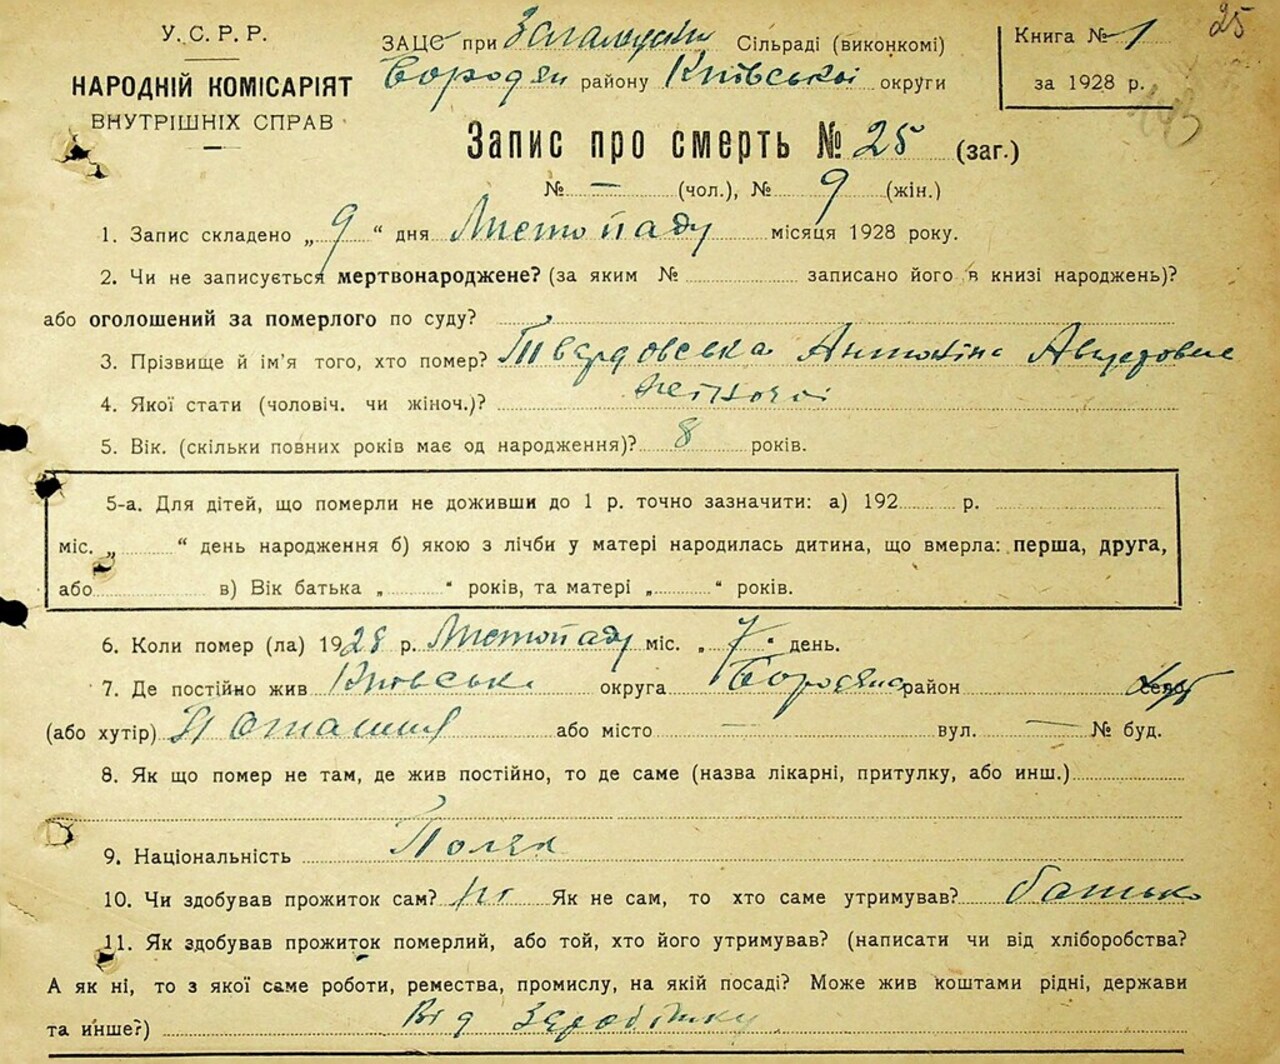 У. С. Р. Р.
НАРОДНІЙ КОМІСАРІЯТ
ВНУТРІШНІХ СПРАВ
ЗАЦС при Сільраді (виконкомі)
Бородян району Київської округи
Книга № 1
за 1928 р.
25
Запис про смерть № 25 (заг.)
№ — (чол.), № 9 (жін.)
1. Запис складено „ 9 “ дня Листопаду місяця 1928 року.
2. Чи не записується мертвонароджене? (за яким № записано його в книзі народжень)?
або оголошений за померлого по суду?
3. Прізвище й ім'я того, хто помер? Твердовська Антоніна
4. Якої стати (чоловіч. чи жіноч.)? жіночої
5. Вік. (скільки повних років має од народження)? 8 років.
5-а. Для дітей, що померли не доживши до 1 р. точно зазначити: а) 192 р.
міс. „ “ день народження б) якою з лічби у матері народилась дитина, що вмерла: перша, друга,
або в) Вік батька „ “ років, та матері „ “ років.
6. Коли помер (ла) 1928 р. Листопаду міс. „ 7 “ день.
7. Де постійно жив Київська округа Бородянс район село
(або хутір) або місто — вул. — № буд.
8. Як що помер не там, де жив постійно, то де саме (назва лікарні, притулку, або инш.)
9. Національність Поляк
10. Чи здобував прожиток сам? Ні Як не сам, то хто саме утримував? батько
11. Як здобував прожиток померлий, або той, хто його утримував? (написати чи від хліборобства?
А як ні, то з якої саме роботи, ремества, промислу, на якій посаді? Може жив коштами рідні, держави
та инше?) Від заробітку